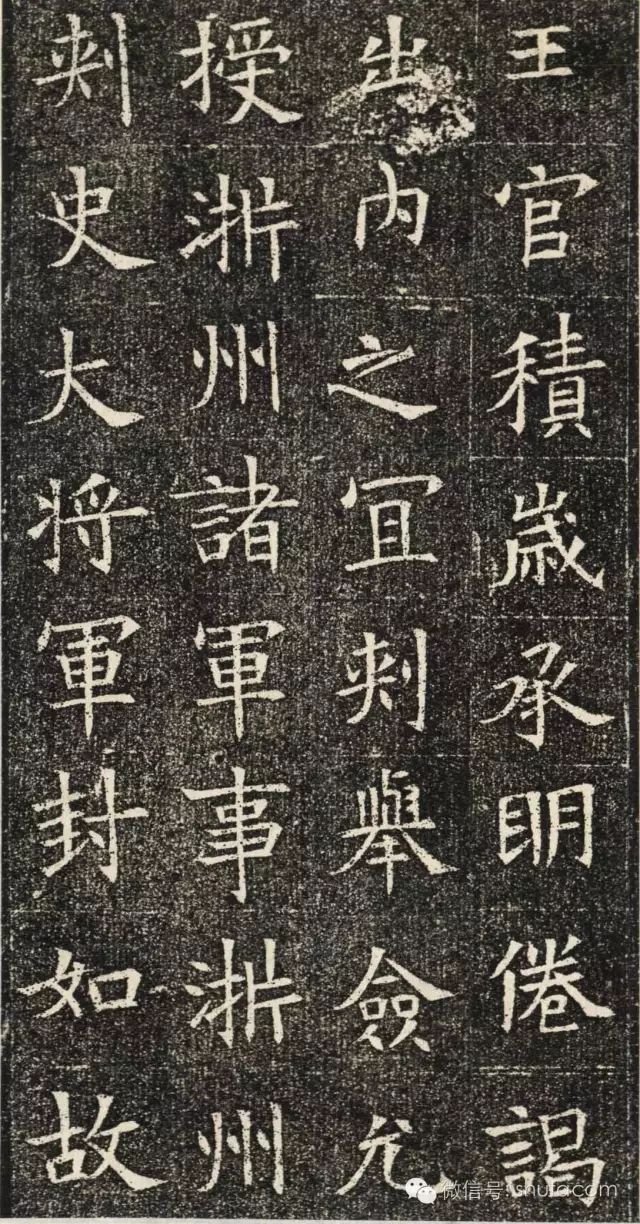 王官積歲承明倦謁
出內之宜刺舉僉允
授淅州諸軍事淅州
刺史大將軍封如故
微信号: shufacom